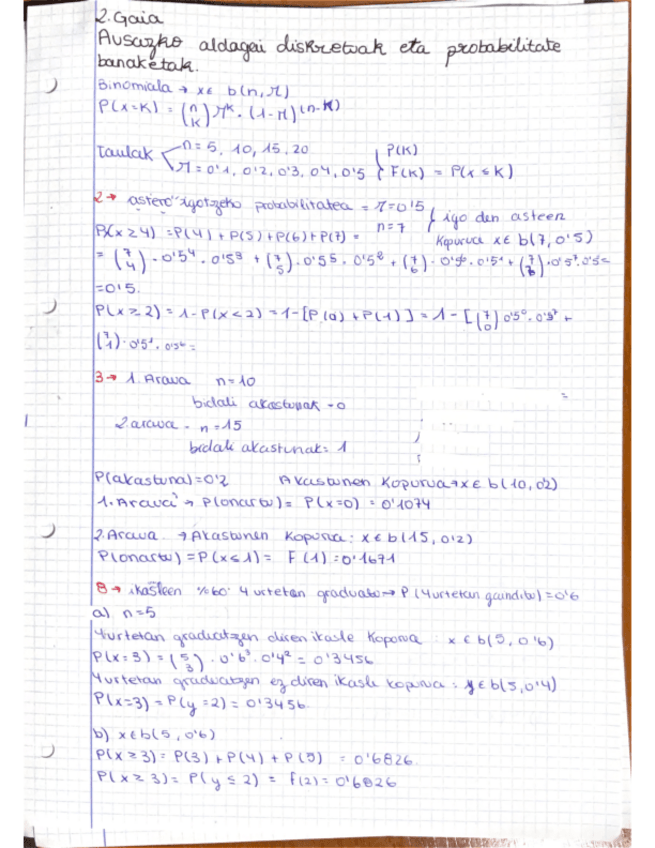 2. Gaia
Ausazko aldagai diskretuak eta probabilitate
banaketak.
Binomiala → x∈ b(n, π)
P(x=K) = (n K) π^K · (1-π)^(n-K)
Taulak n = 5, 10, 15, 20 P(K)
π = 0'1, 0'2, 0'3, 0'4, 0'5 F(K) = P(x ≤ K)
2→ astero igotzeko probabilitatea = π=0'5
n=7 igo den asteen
P(x ≥ 4) = P(4) + P(5) + P(6) + P(7) = Kopurua x∈ b(7, 0'5)
= (7 4) · 0'5^4 · 0'5^3 + (7 5) · 0'5^5 · 0'5^2 + (7 6) · 0'5^6 · 0'5^1 +
= 0'5.
P(x ≥ 2) = 1 - P(x < 2) = 1 - [P(0) + P(1)] = 1 - [(7 0) 0'5^0 · 0'5^7 +
(7 1) · 0'5^1 · 0'5^6 =
3→ 1. Araua n=10
bidali akastunak = 0
2. araua - n=15
bidali akastunak = 1
P(akastuna) = 0'2 Akastunen Kopurua → x∈ b(10, 0'2)
1. Araua → P(onartu) = P(x=0) = 0'1074
2. Araua → Akastunen Kopurua: x∈ b(15, 0'2)
P(onartu) = P(x≤1) = F(1) = 0'1671
8→ ikasleen %60 4 urtetan graduatu → P(4 urtetan gainditu) = 0'6
a) n=5
4 urtetan graduatzen diren ikasle Kopurua : x ∈ b(5, 0'6)
P(x=3) = (5 3) · 0'6^3 · 0'4^2 = 0'3456
4 urtetan graduatzen ez diren ikasle kopurua : y∈ b(5, 0'4)
P(x=3) = P(y=2) = 0'3456.
b) x∈b(5, 0'6)
P(x ≥ 3) = P(3) + P(4) + P(5) = 0'6826.
P(x ≥ 3) = P(y ≤ 2) = f(2) = 0'6826